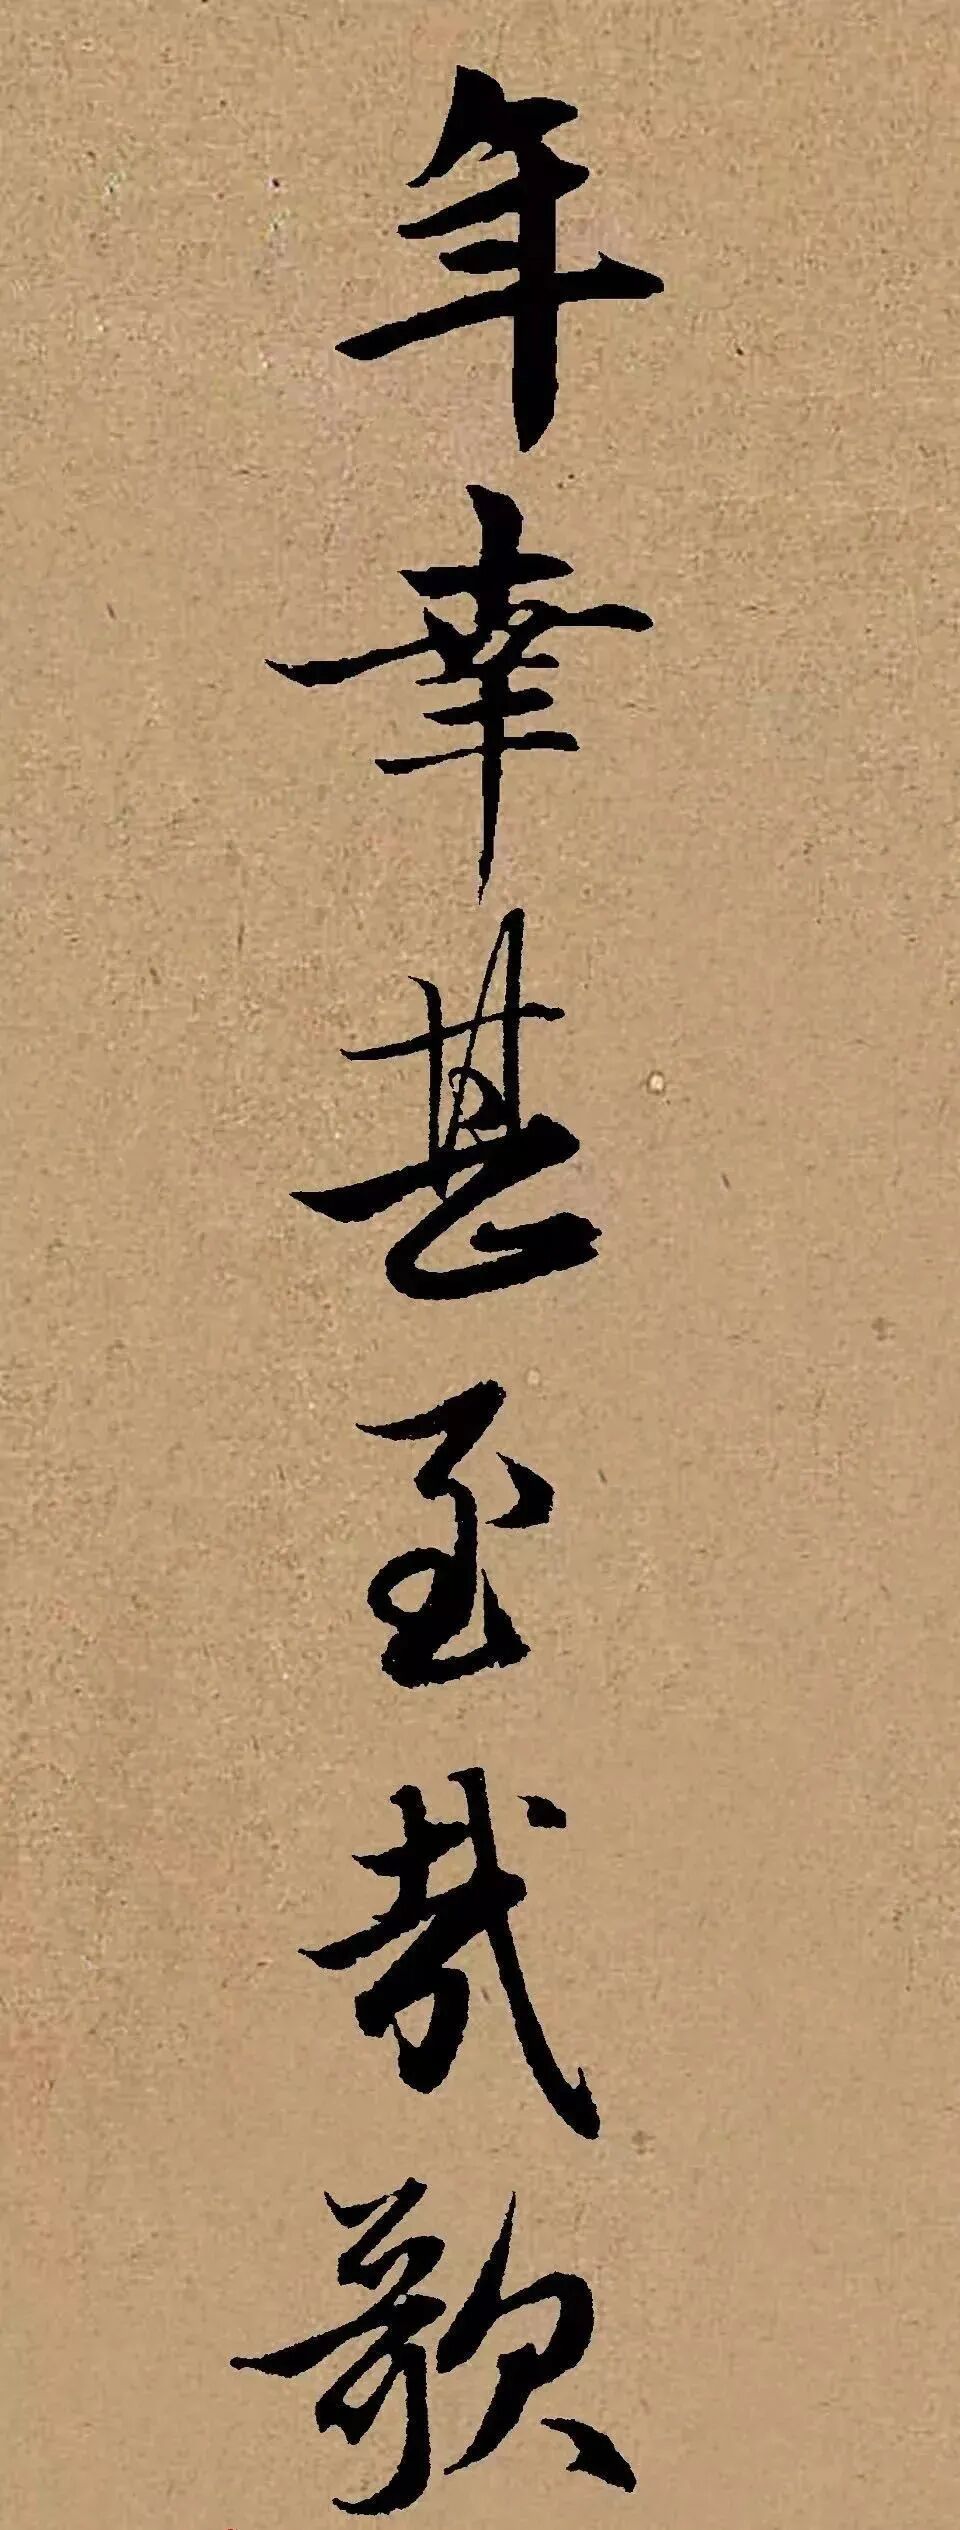 年幸甚至哉歌